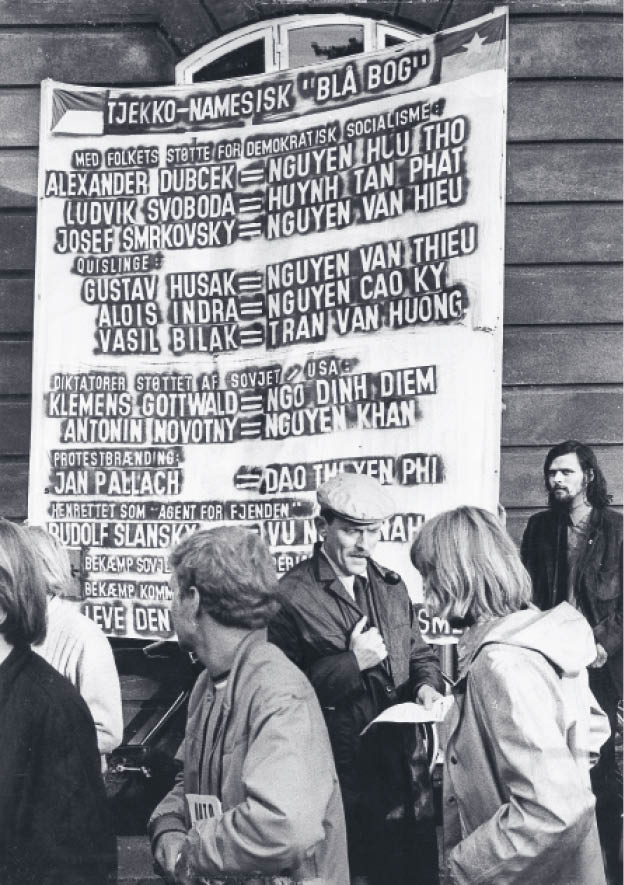 TJEKKO-NAMESISK "BLÅ BOG"
MED FOLKETS STØTTE FOR DEMOKRATISK SOCIALISME:
ALEXANDER DUBCEK = NGUYEN HUU THO
LUDVIK SVOBODA = HUYNH TAN PHAT
JOSEF SMRKOVSKY = NGUYEN VAN HIEU
QUISLINGE:
GUSTAV HUSAK = NGUYEN VAN THIEU
ALOIS INDRA = NGUYEN CAO KY
VASIL BILAK = TRAN VAN HUONG
DIKTATORER STØTTET AF SOVJET / USA:
KLEMENS GOTTWALD = NGO DINH DIEM
ANTONIN NOVOTNY = NGUYEN KHAN
PROTESTBRÆNDING:
JAN PALLACH = DAO THI YEN PHI
HENRETTET SOM "AGENT FOR FJENDEN"
RUDOLF SLANSKY = VU
BEKÆMP
BEKÆMP
LEVE DEN